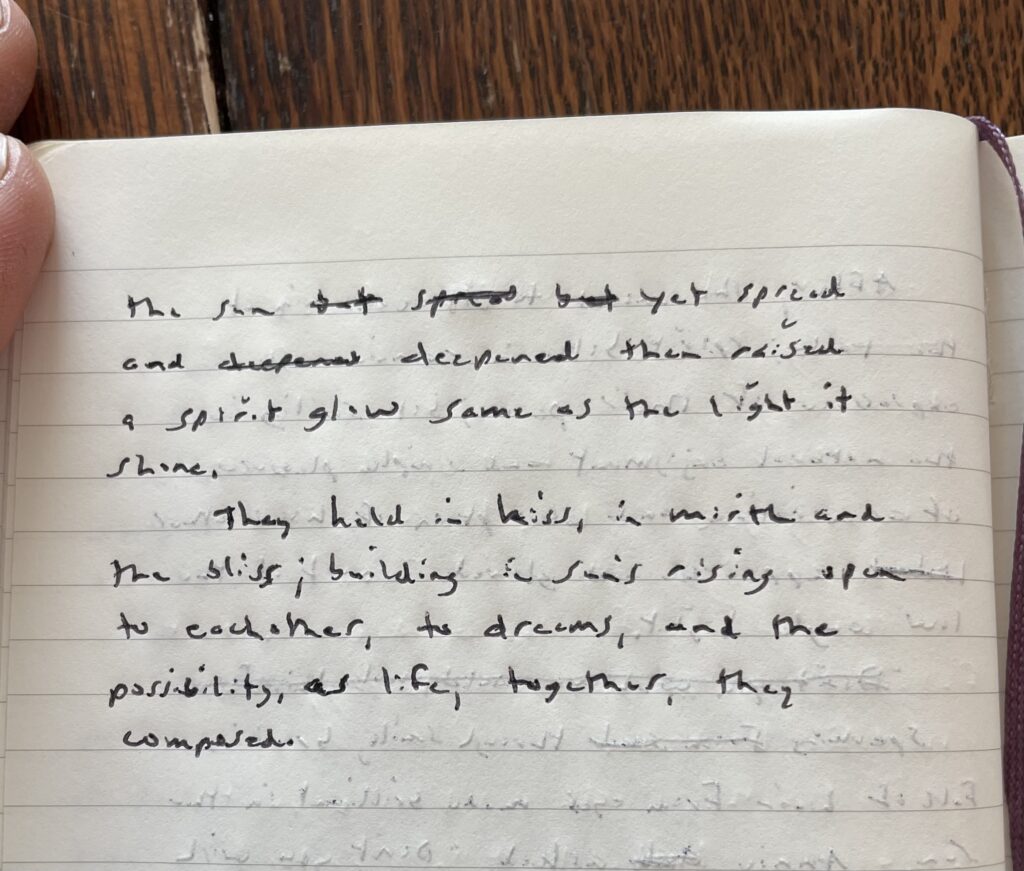 the sun but spread but yet spread
and deepened deepened then raised
a spirit glow same as the light it
shone.
They held in kiss, in mirth and
the bliss; building in sun's rising open
to eachother, to dreams, and the
possibility, as life, together, they
composed.